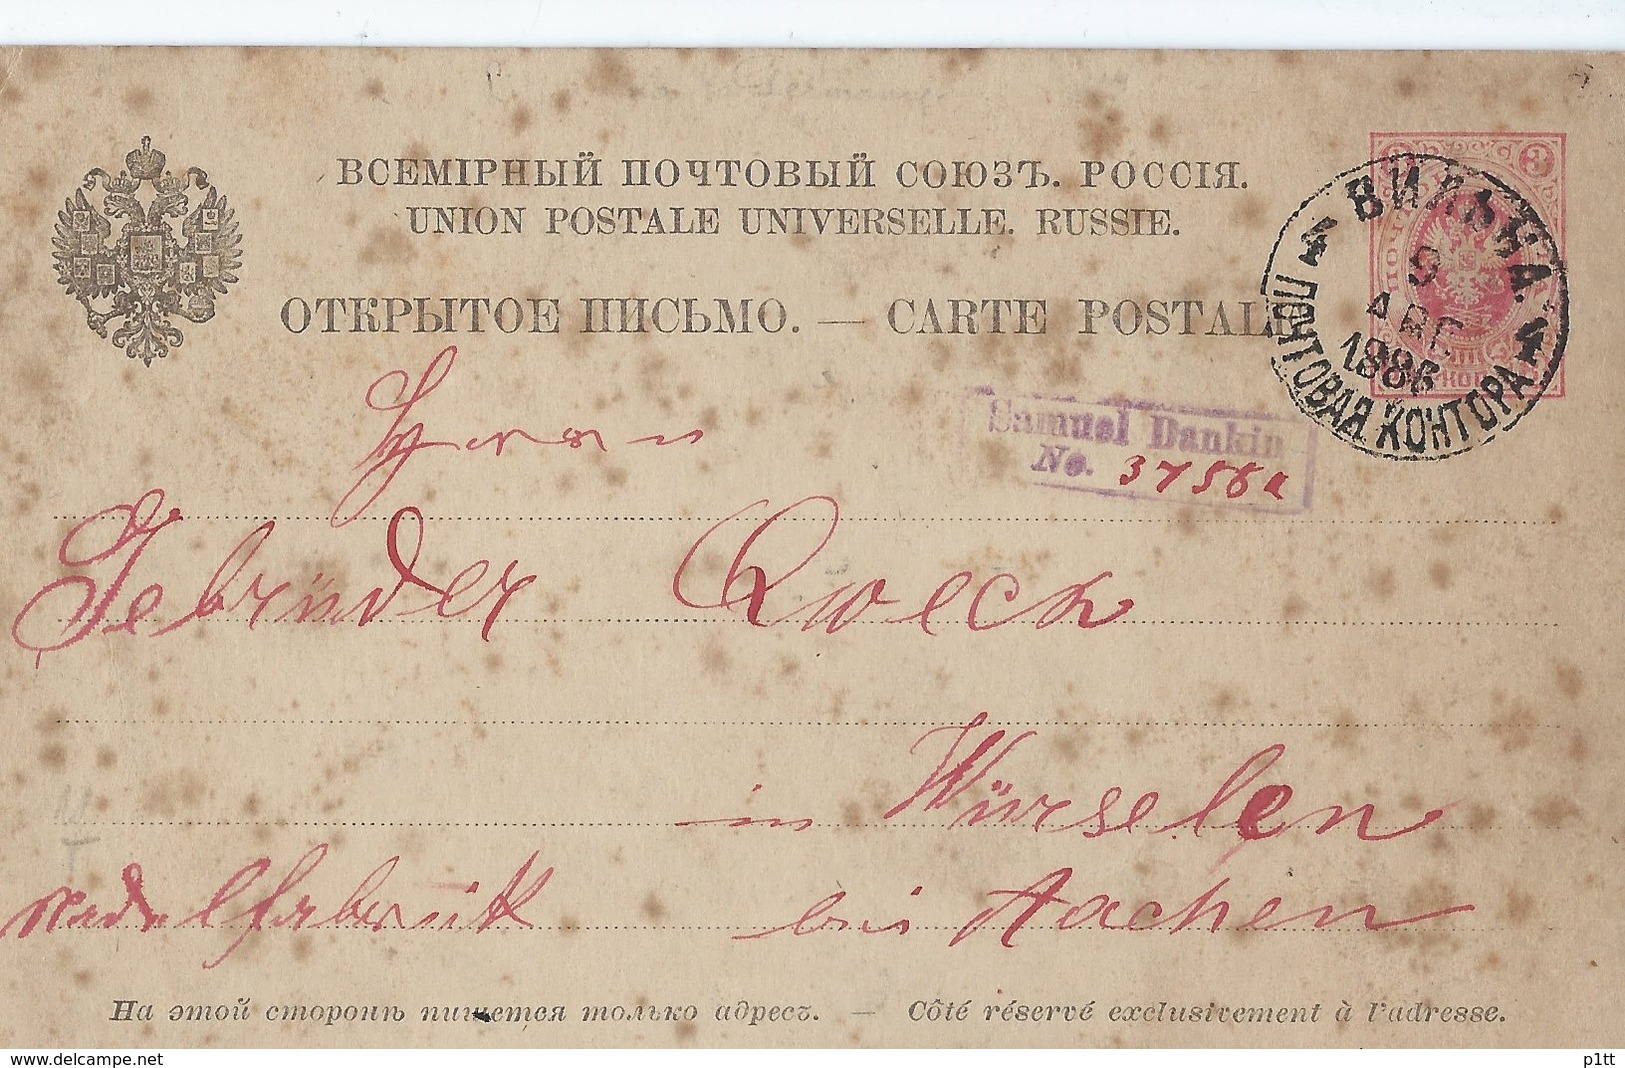 ВСЕМІРНЫЙ ПОЧТОВЫЙ СОЮЗЪ. РОССІЯ.
UNION POSTALE UNIVERSELLE. RUSSIE.
ОТКРЫТОЕ ПИСЬМО. — CARTE POSTALE
3
ВИЛЬНА.
4 4
9
АВГ
1886
ПОЧТОВАЯ КОНТОРА
Samuel Dankin
No. 3756a
Herren
Gebrüder Queck
in Würselen
Nadelfabrik bei Aachen
На этой сторонѣ пишется только адресъ. — Côté réservé exclusivement à l'adresse.
delcampe.net
p1tt